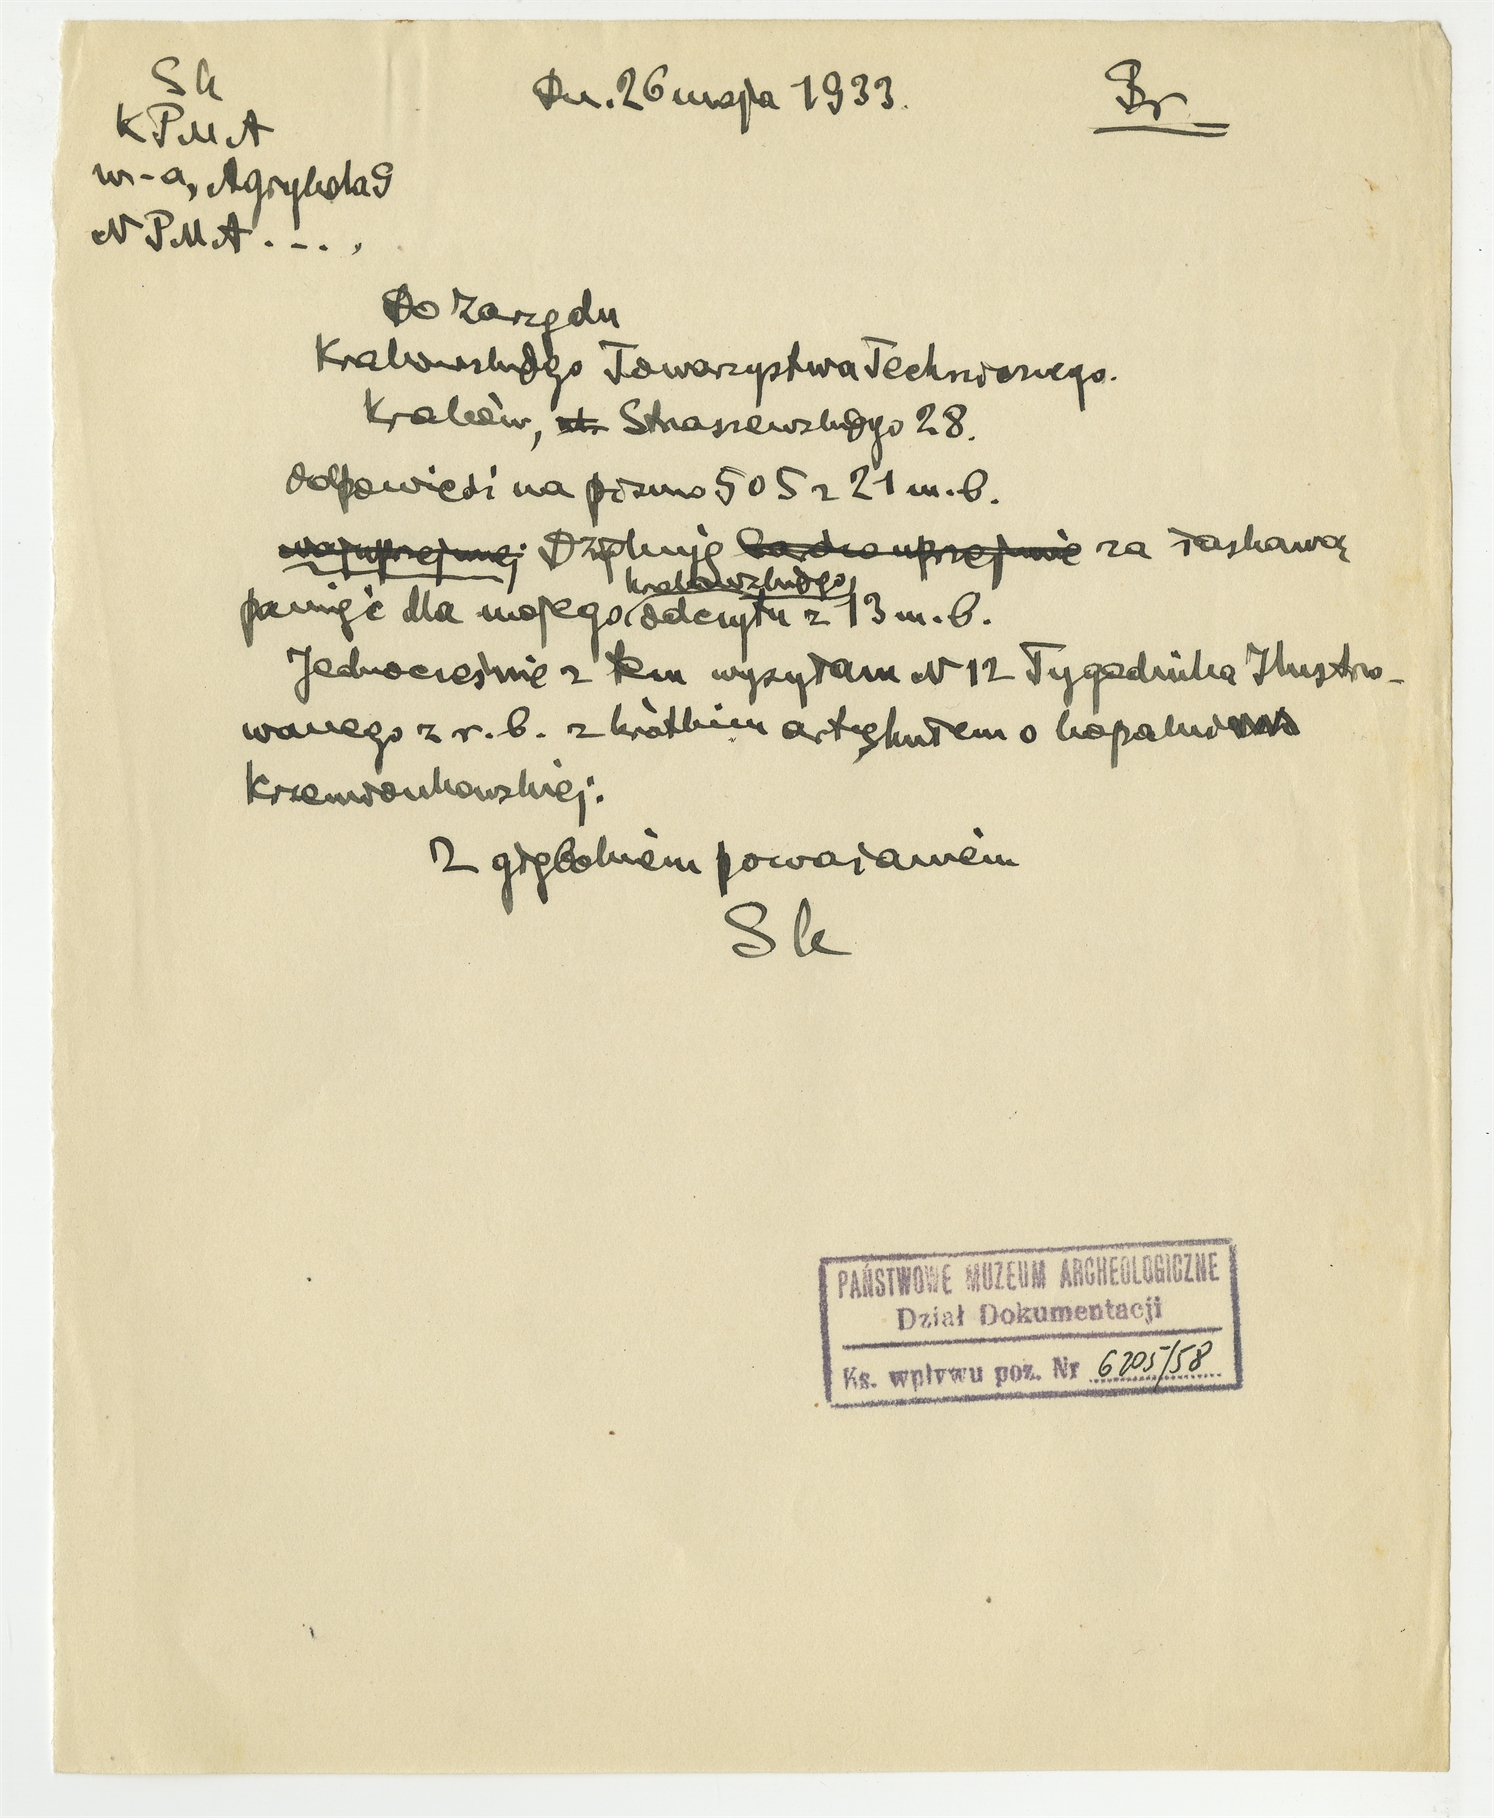 Sk
Dn. 26 maja 1933.
Br
KPMA
W-a, Agrykola 9
N PMA . - . ,
Do Zarządu
Krakowskiego Towarzystwa Technicznego.
Kraków, ul. Straszewskiego 28.
odpowiedź na pismo 505 z 21 m. b.
najuprzejmiej Dziękuję bardzo uprzejmie za łaskawą
krakowskiego
pamięć dla mojego odczytu z 13 m. b.
Jednocześnie z tem wysyłam N 12 Tygodnika Ilustro-
wanego z r. b. z krótkiem artykułem o kopalni
Krzemionkowskiej.
Z głębokiem poważaniem
Sk
PAŃSTWOWE MUZEUM ARCHEOLOGICZNE
Dział Dokumentacji
Ks. wpływu poz. Nr 6205/58